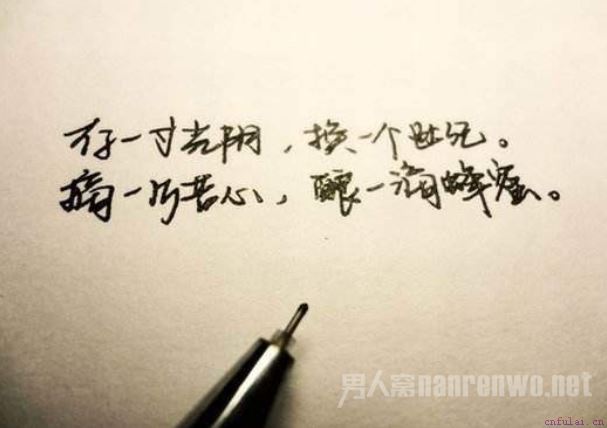 存一寸光阴，换一个世纪。
摘一片苦心，酿一滴蜂蜜。
男人窝nanrenwo.net
cnfulai.cn